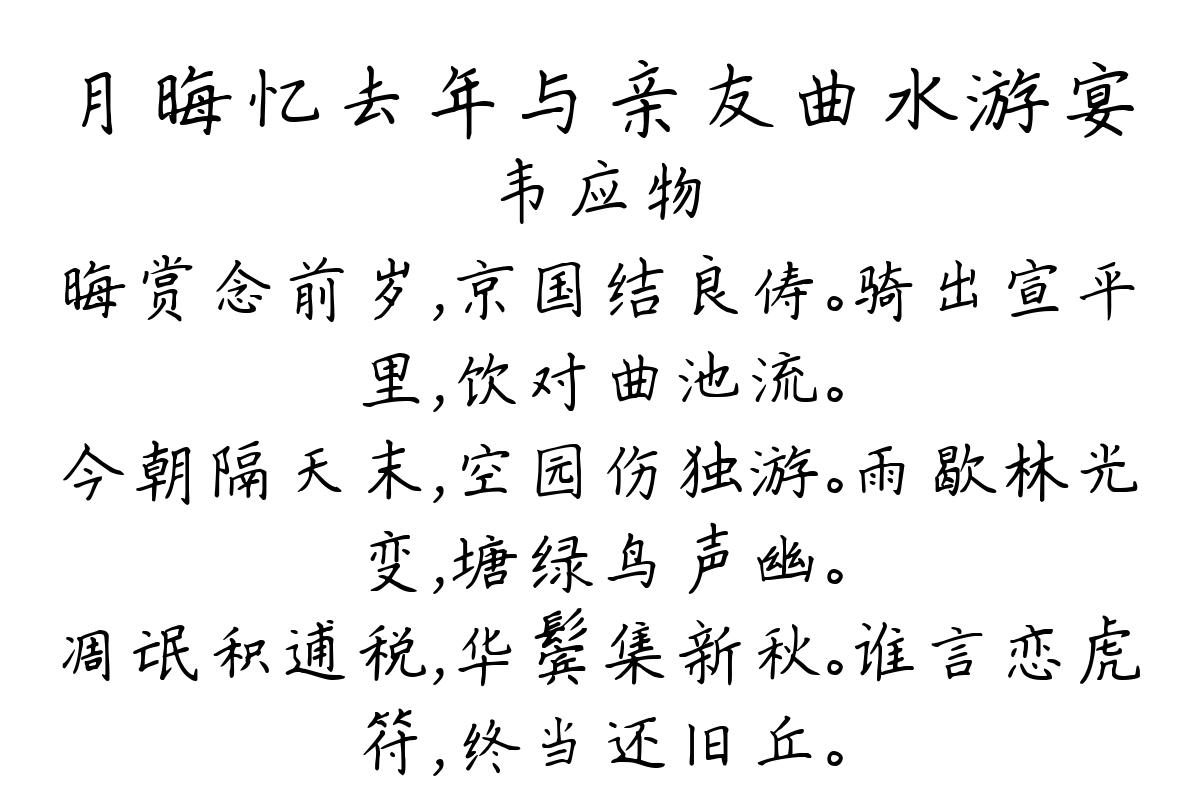 月晦忆去年与亲友曲水游宴
韦应物
晦赏念前岁,京国结良俦。骑出宣平
里,饮对曲池流。
今朝隔天末,空园伤独游。雨歇林光
变,塘绿鸟声幽。
凋氓积逋税,华鬓集新秋。谁言恋虎
符,终当还旧丘。